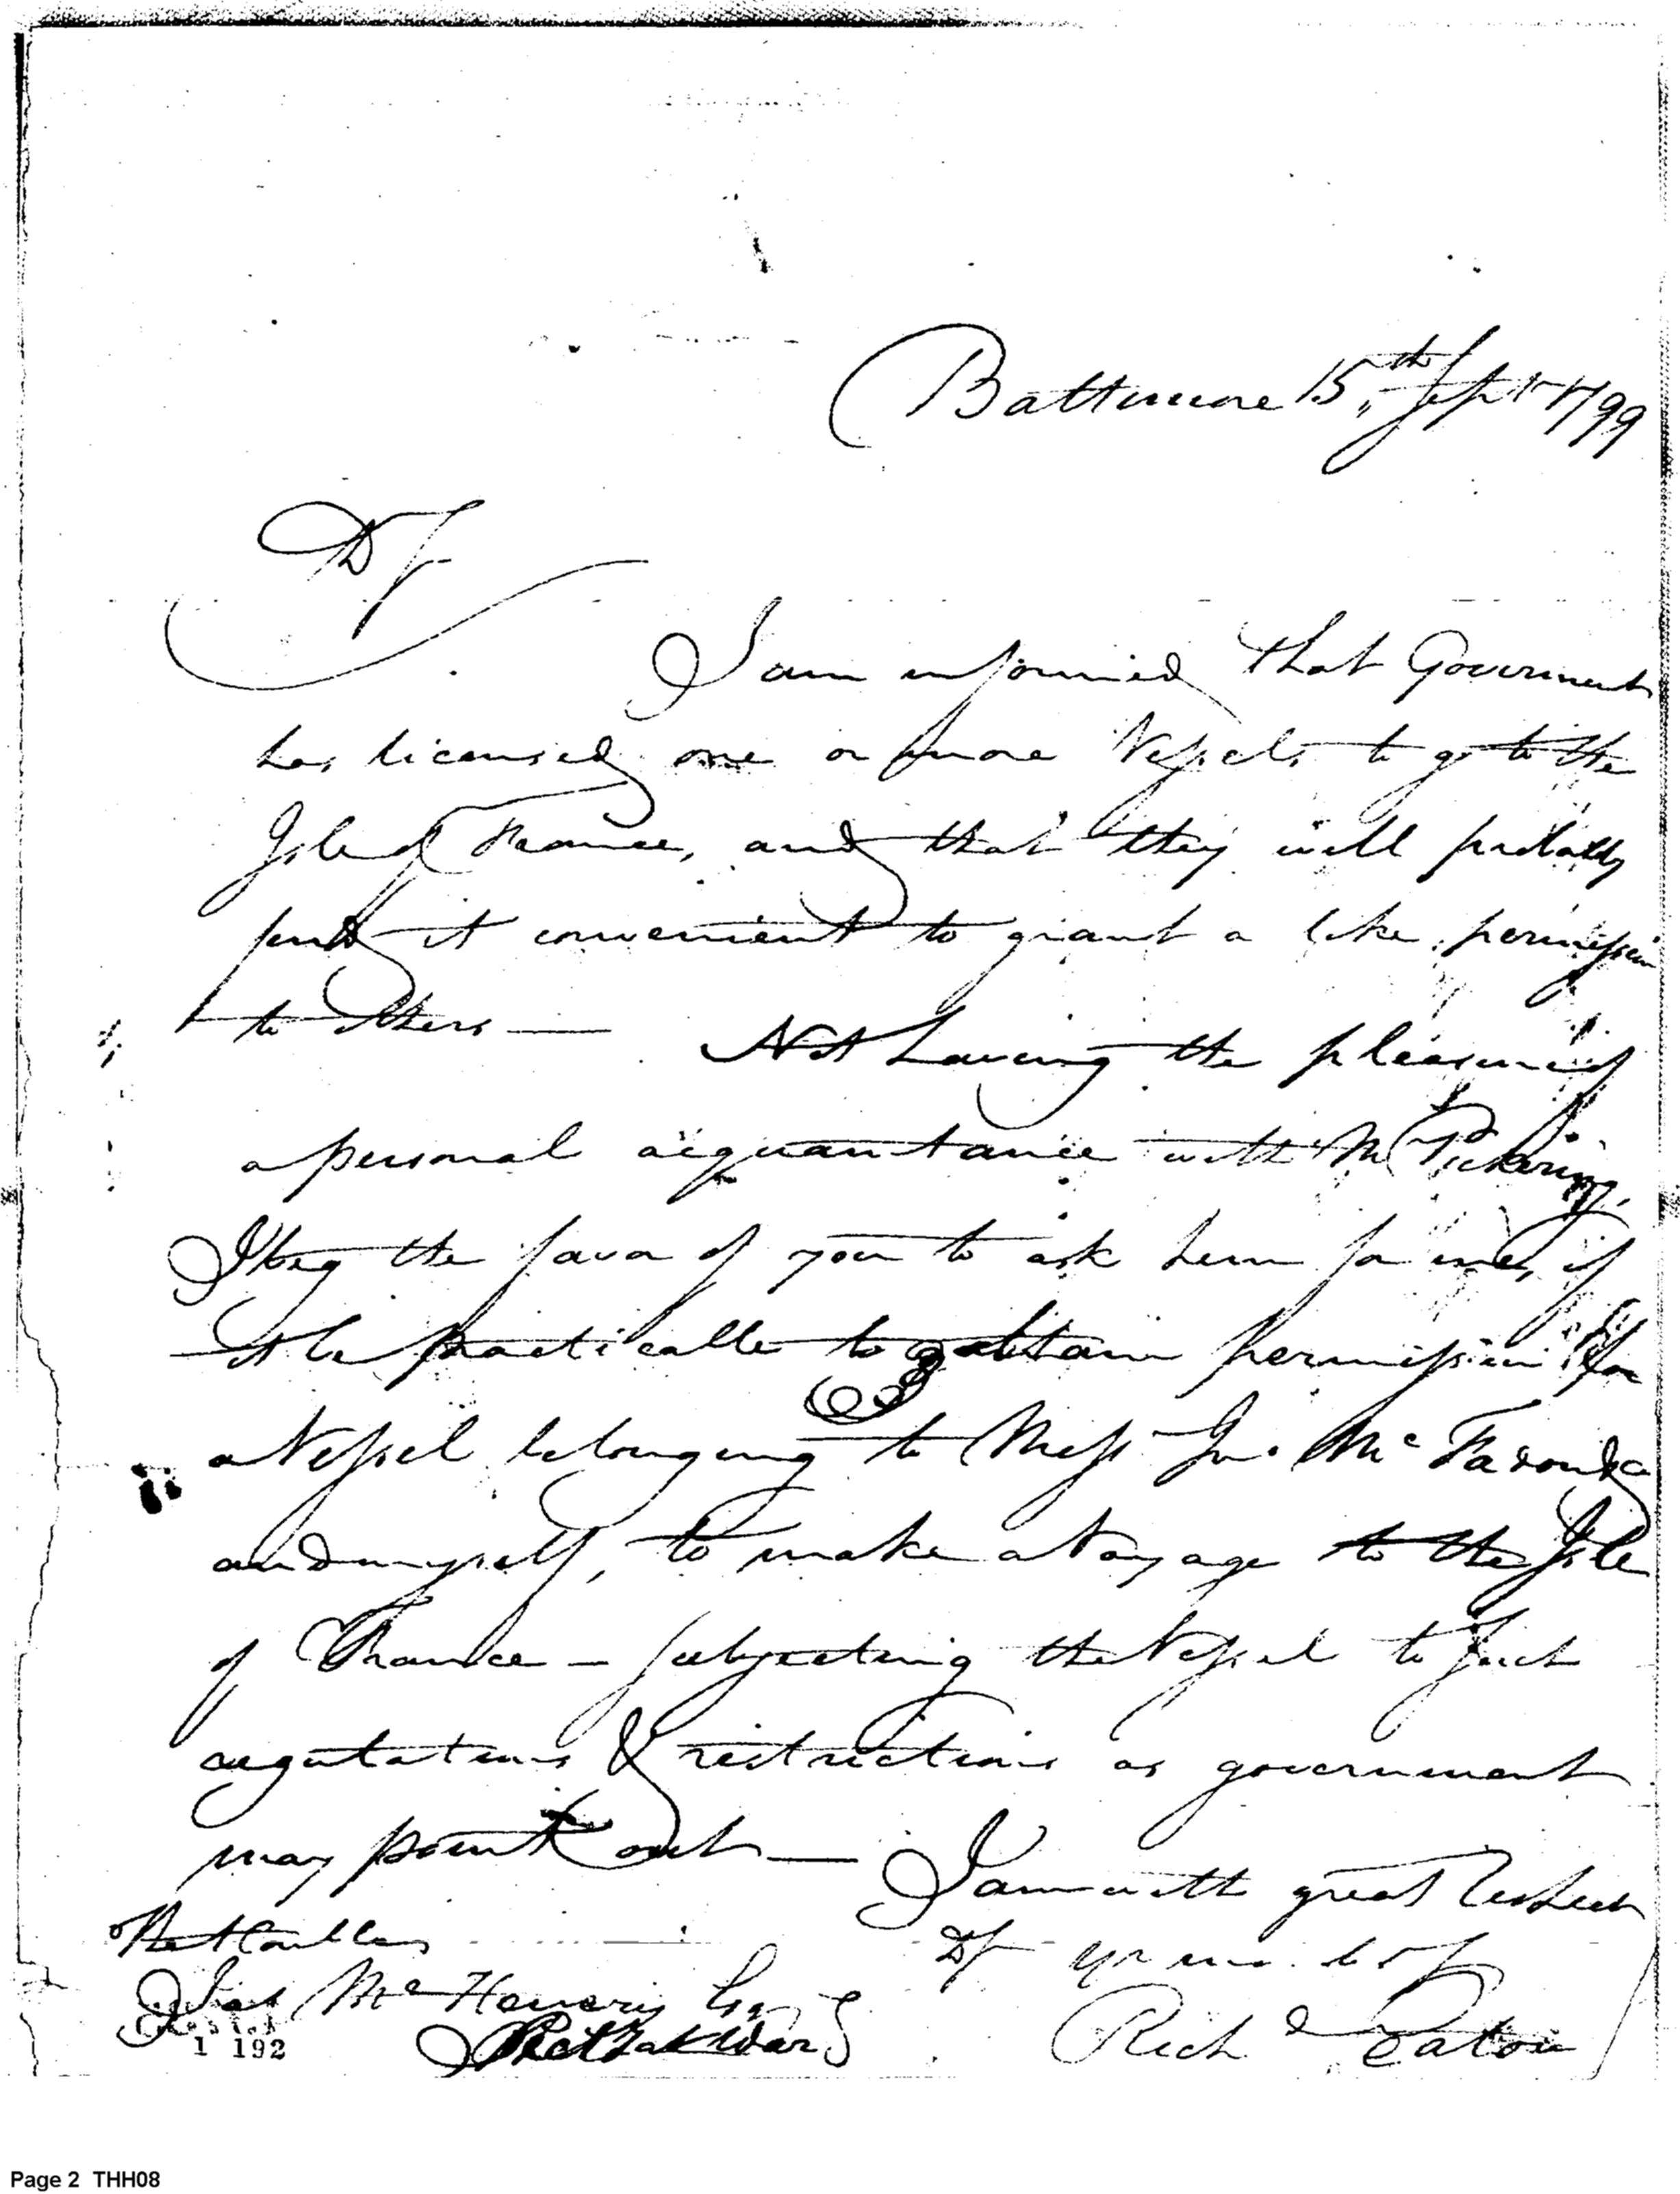 Baltimore 15th Sept 1799
Dr Sr
I am informed that Government
has licensed one or more Vessels to go to the
Isle of France, and that they will probably
find it convenient to grant a like permission
to others — Not having the pleasure of
a personal acquaintance with Mr Pickering,
I beg the favor of you to ask him for me, if
it be practicable to obtain permission for
a Vessel belonging to Messrs Jno. McFadon & Co
and myself, to make a Voyage to the Isle
of France — subjecting the Vessel to such
regulations & restrictions as government
may point out — I am with great Respect
The Honble Dr Sr yr mo. ob Sr
Jas McHenry Esqr Rich Caton
Secretary at War
1 192
Page 2 THH08